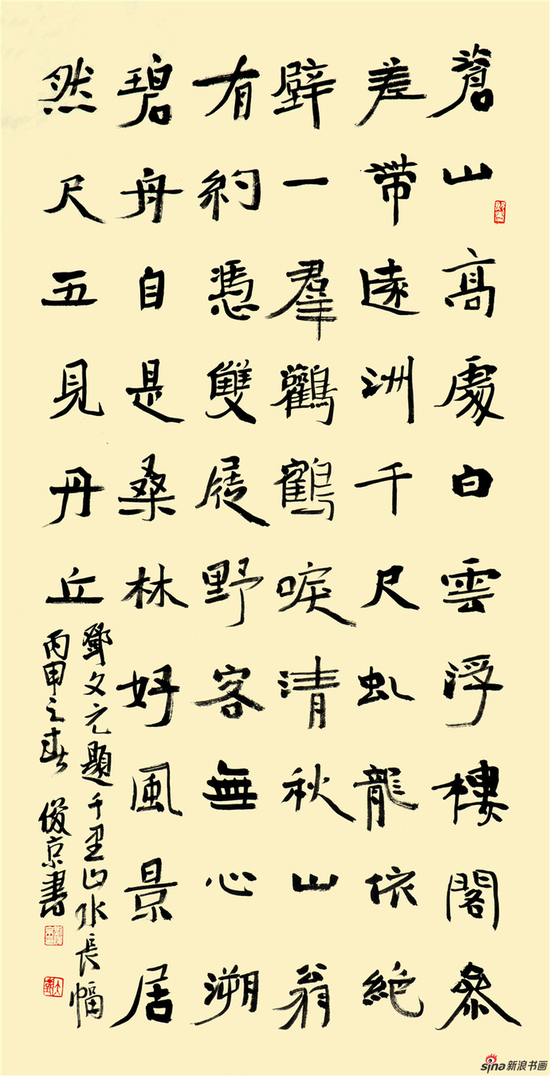 蒼山高處白雲浮樓閣參
差帶遠洲千尺虬龍依絶
壁一羣鸛鶴唳清秋山翁
有約憑雙屐野客無心溯
碧舟自是桑林好風景居
然尺五見丹丘
鄧文元題千里山水長幅
丙申之春 俊京書
sina新浪书画